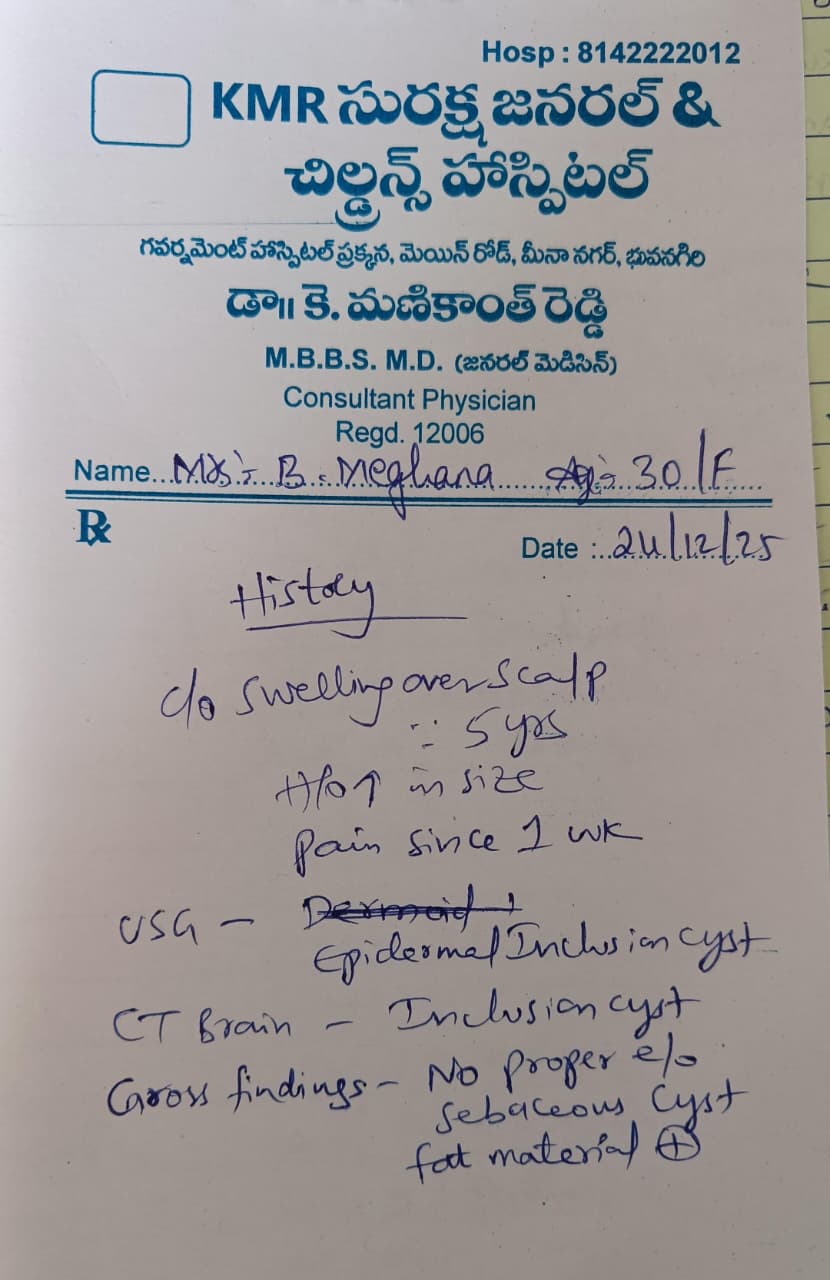 Hosp : 8142222012
KMR సురక్ష జనరల్ &
చిల్డ్రన్స్ హాస్పిటల్
గవర్నమెంట్ హాస్పిటల్ ప్రక్కన, మెయిన్ రోడ్, మీనా నగర్, భువనగిరి
డా॥ కె. మణికాంత్ రెడ్డి
M.B.B.S. M.D. (జనరల్ మెడిసిన్)
Consultant Physician
Regd. 12006
Name... B. Meghana 30/F
Rx
Date : 24/12/25
History
c/o swelling over scalp
5 yrs
H/o ↑ in size
pain since 1 wk
USG - Dermoid
Epidermal Inclusion cyst
CT Brain - Inclusion cyst
Gross findings - No proper e/o
sebaceous cyst
fat material ⊕